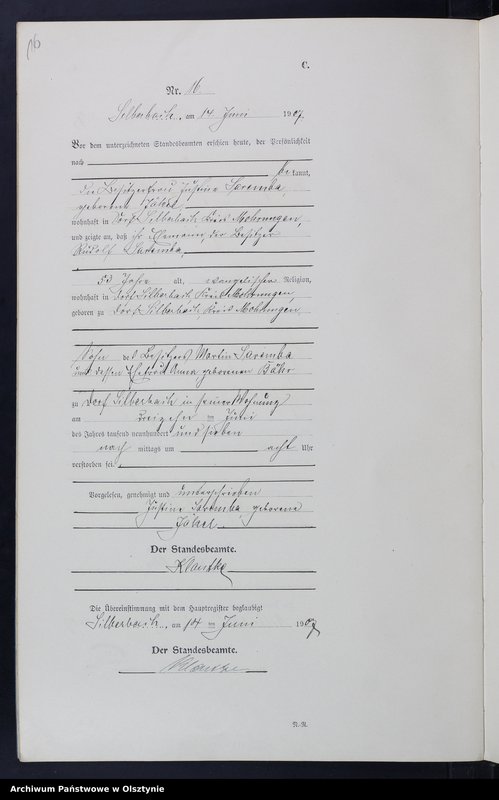 16
C.
Nr. 16.
Silberbach, am 14 Juni 1907.
Vor dem unterzeichneten Standesbeamten erschien heute, der Persönlichkeit
nach
be kannt,
die Besitzerfrau Justine Saremba,
geborene Jäckel
wohnhaft in Dorf Silberbach Kreis Mohrungen,
und zeigte an, daß ihr Ehemann, der Besitzer
Rudolf Saremba,
53 Jahre alt, evangelischer Religion,
wohnhaft in Dorf Silberbach Kreis Mohrungen,
geboren zu Dorf Silberbach, Kreis Mohrungen,
Sohn des Besitzers Martin Saremba
und dessen Ehefrau Anna, geborenen
zu Dorf Silberbach in seiner Wohnung
am dreizehn ten Juni
des Jahres tausend neunhundert und sieben
nach mittags um acht Uhr
verstorben sei.
Vorgelesen, genehmigt und unterschrieben
Justine Saremba, geborene
Jäckel
Der Standesbeamte.
Klautke
Die Übereinstimmung mit dem Hauptregister beglaubigt
Silberbach, am 14 ten Juni 1907
Der Standesbeamte.
Klautke
N.-R.
Archiwum Państwowe w Olsztynie